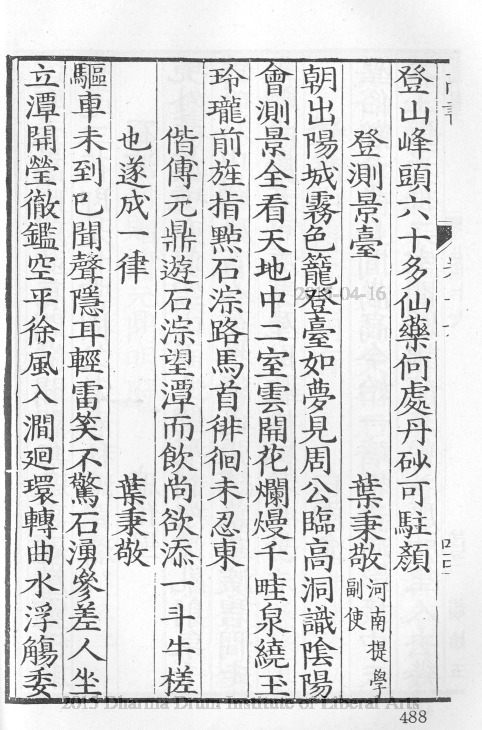 登山峰頭六十多仙藥何處丹砂可駐顏
登測景臺　葉秉敬河南提學副使
朝出陽城霧色籠登臺如夢見周公臨高洞識陰陽
會測景全看天地中二室雲開花爛熳千畦泉繞玉
玲瓏前旌指㸃石淙路馬首徘徊未忍東
偕傅元鼎遊石淙望潭而飲尚欲添一斗牛槎
也遂成一律　葉秉敬
驅車未到已聞聲隱耳輕雷笑不驚石湧參差人坐
立潭開瑩徹鑑空平徐風入澗廻環轉曲水浮觴委
2013 Dharma Drum Institute of Liberal Arts
488